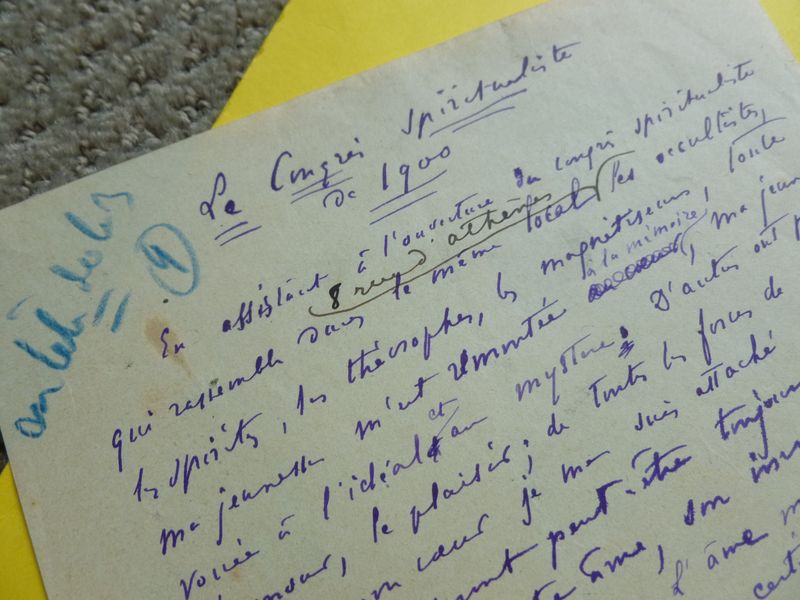 Le Congrès Spiritualiste
de 1900
4
En assistant à l'ouverture du congrès spiritualiste
8 rue d'athènes
qui rassemble dans le même local les occultistes,
les spirites, les théosophes, les magnétiseurs, toute
à la mémoire
ma jeunesse m'est remontée, ma jeun
vouée à l'idéal et au mystère. D'autres ont p
le plaisir; de toutes les forces de
cœur je me suis attaché
peut-être toujours
âme, son
L'âme m